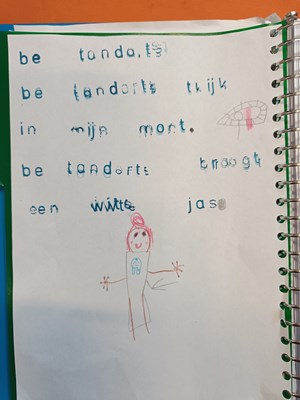 be tandats
be tandarts tkijk
in mijn mont.
be tandarts traagt
een witte jas